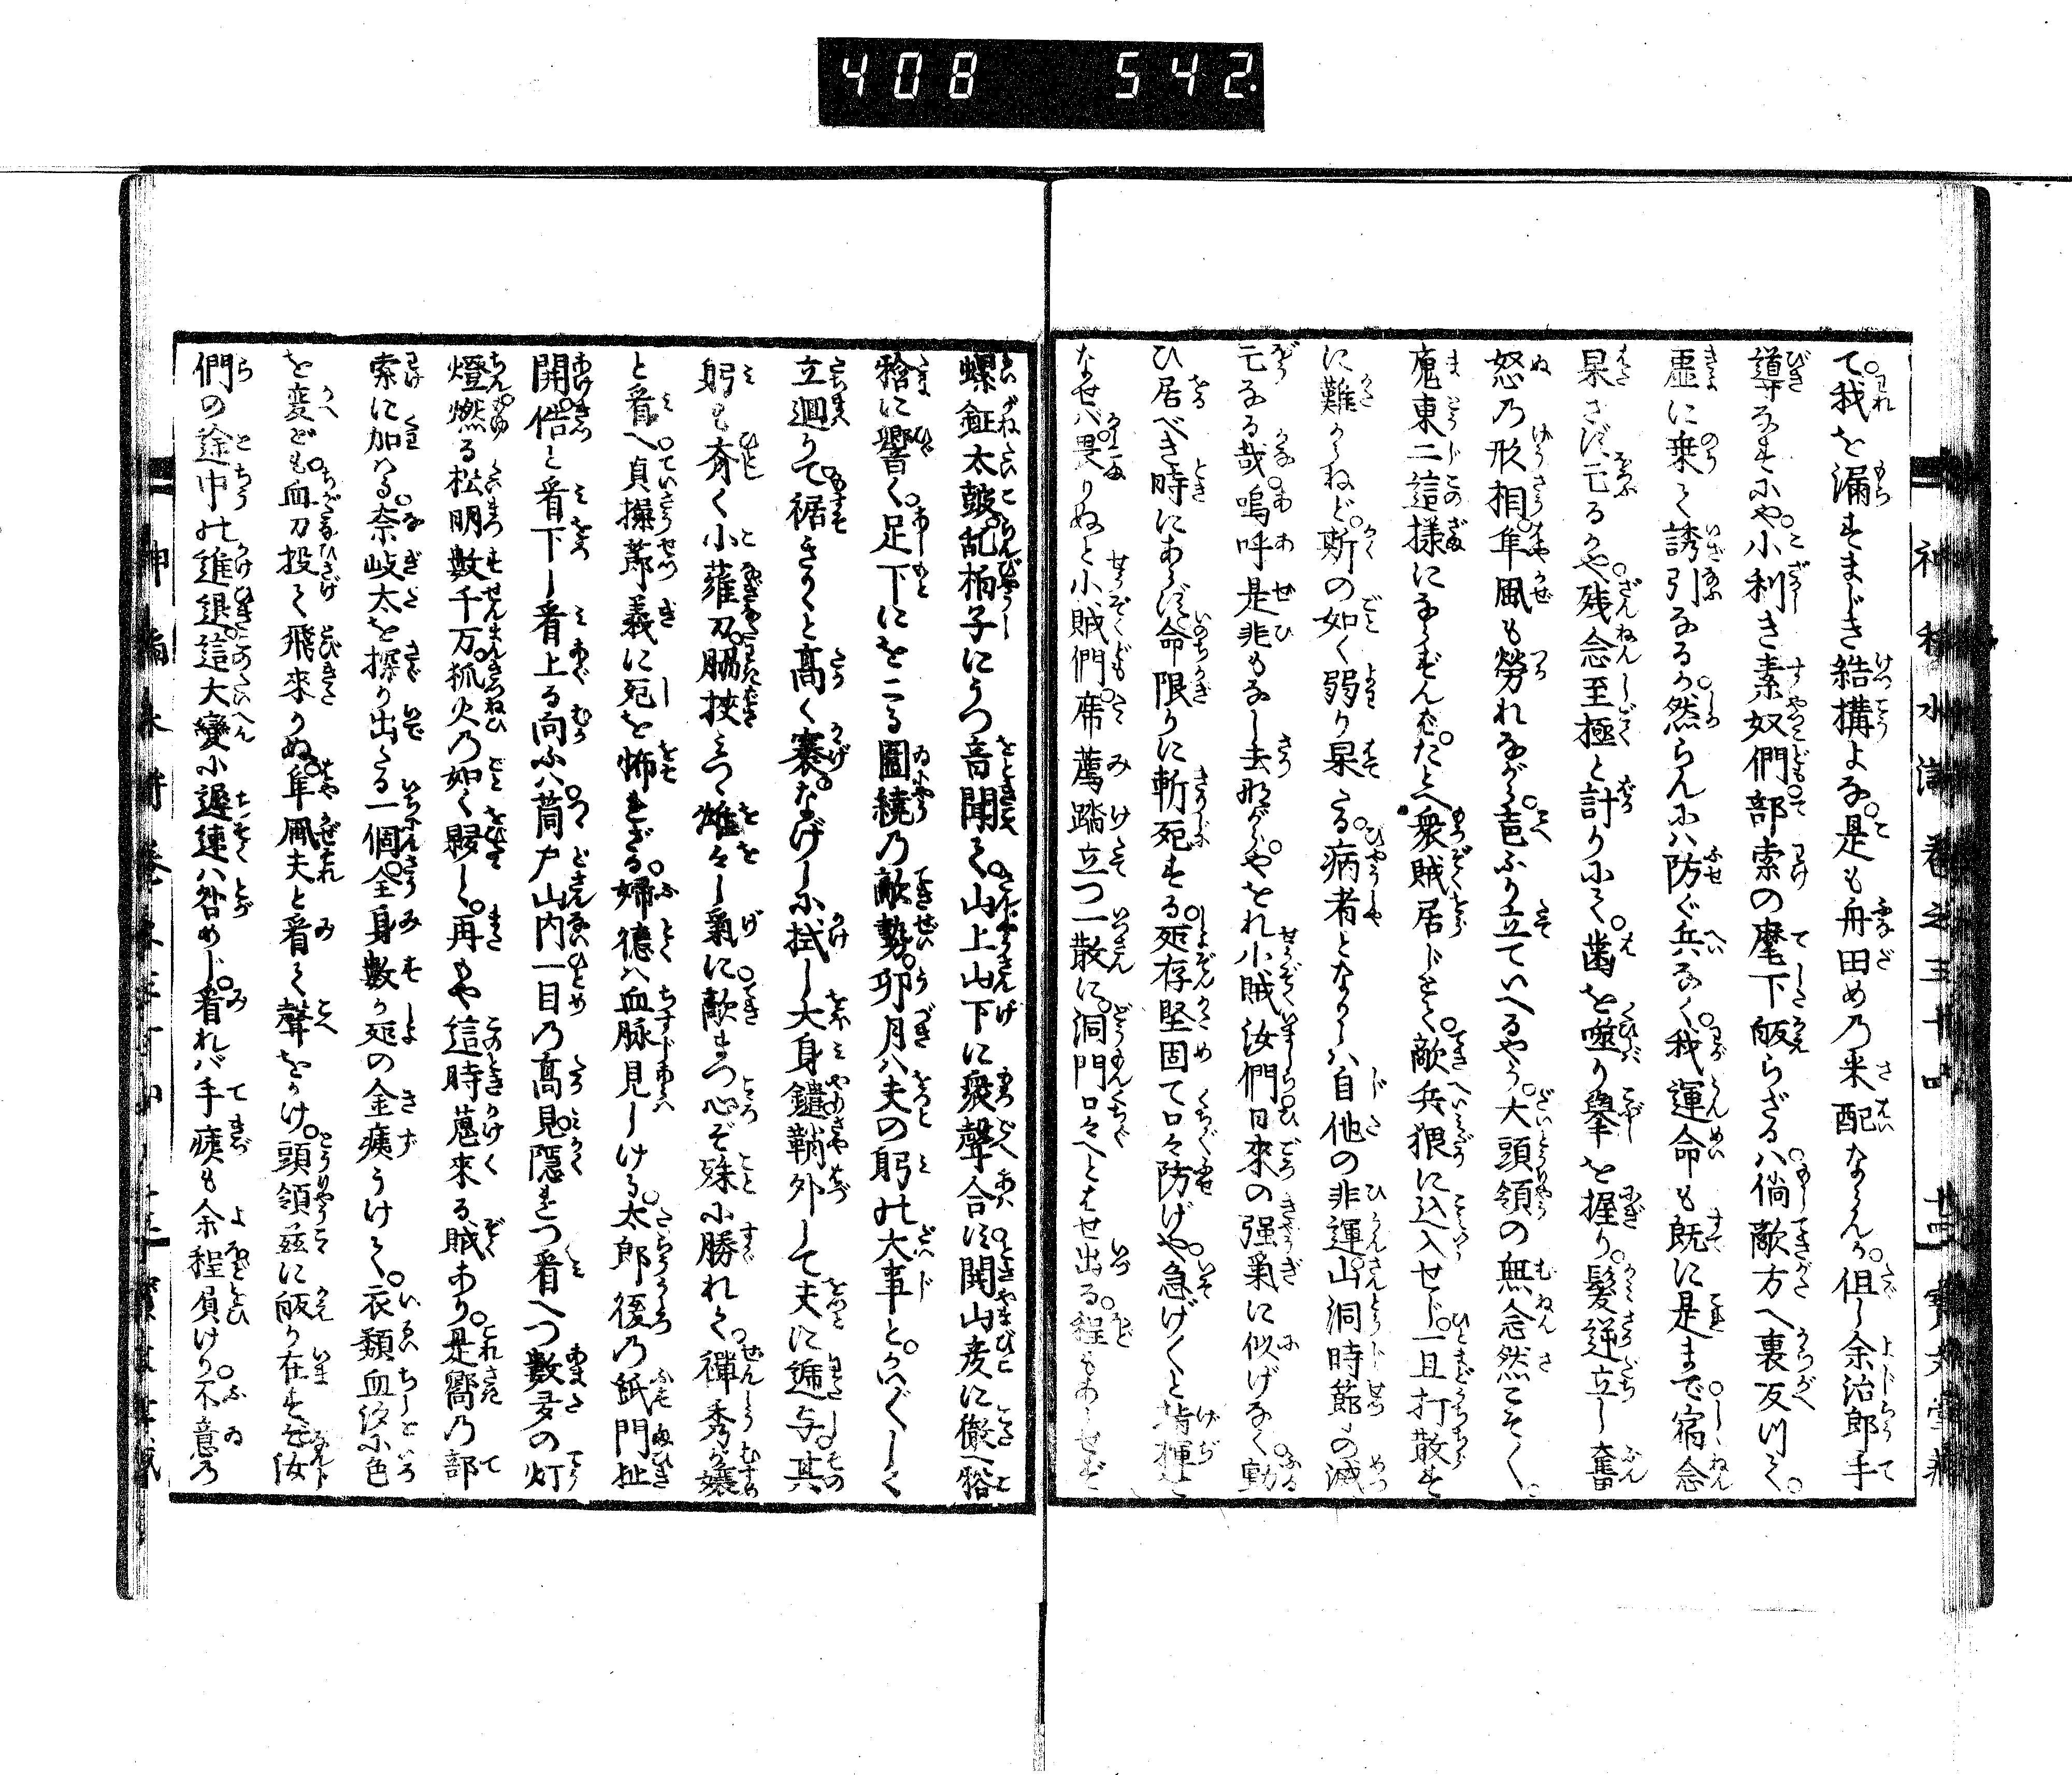 408 542
神稲水滸巻之三十四 廿四 寶文堂藏
て我を漏すまじき結構よな是も舟田めの来配ならんが但し余治郎手
導なすにや小利き素奴們部索の麾下皈らざるハ倘敵方へ裏反川て
虚に乗て誘引なるか然らんにハ防ぐ兵なく我運命も既に是まで宿念
果さず亡るかや残念至極と計りにて歯を噬り拳を握り髪逆立し奮
怒の形相隼風も勞れながら声ふり立ていへるやう大頭領の無念然こそ〱
鬼東二這様にならずんバたとへ衆賊居じとて敵兵猥に込入せじ一且打散す
に難からねど斯の如く弱り果たる病者となりしハ自他の非運山洞時節の滅
亡なる哉嗚呼是非もなし去ながらやをれ小賊汝們日来の强氣に似げなく動
ひ居べき時にあらず命限りに斬死する所存堅固て口々防げや急げ〱と指揮を
なせバ畏りぬと小賊們席薦踏立つ一散に洞門口々へとはせ出る程もあらせず
螺鉦太鼓乱柏子にうつ音聞て山上山下に衆聲合ず閧山彦に徹へ谺
谺に響く足下にをこる圍繞の敵勢卯月ハ夫の躬の大事とかひ〲しく
立廻りて裾きり〱と高く褰なげしに拭し大身鑓鞘外して夫に逓与其
躬も斎く小薙刀脇挾みつゝ雄々し氣に敵まつ心ぞ殊に勝れて禅秀が孃
と看へ貞操節義に死を怖れざる婦德ハ血脉見しける太郎後の䑛門扯
開倍と看下し看上る向ふハ筒戸山内一目の高見隠れつ看へつ數多の灯
燈燃る松明數千万狐火の如く夥し再もや這時蒐来る賊あり是嚮の部
索に加ハる奈岐太を探り出たる一個全身數か所の金痍うけて衣類血汐に色
を変ども血刀投て飛来りぬ隼風夫と看て聲をかけ頭領茲に皈り在すぞ汝
們の途中の進退這大變に遅速ハ咎めじ看れバ手痍も余程負けり不意の